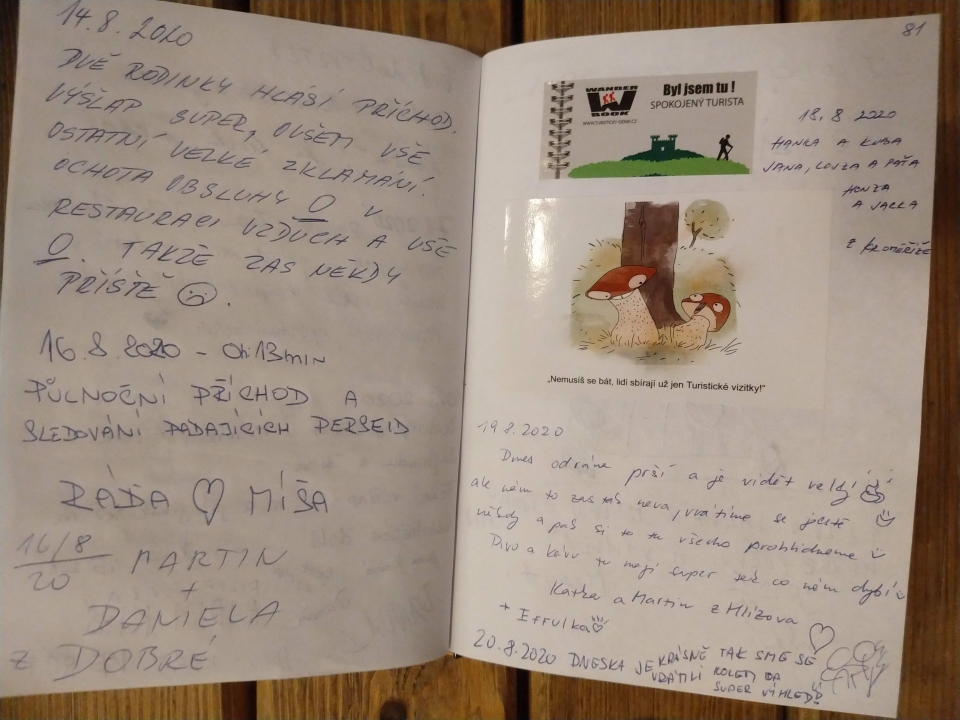 14.8.2020
DVĚ RODINKY HLÁSÍ PŘÍCHOD.
VÝŠLAP SUPER, OVŠEM VŠE
OSTATNÍ VELKÉ ZKLAMÁNÍ.
OCHOTA OBSLUHY 0 V
RESTAURACI VZDUCH A VŠE
0. TAKŽE ZAS NĚKDY
PŘÍŠTĚ ☹.
16.8.2020 - 0h:13min
PŮLNOČNÍ PŘÍCHOD A
SLEDOVÁNÍ PADAJÍCÍCH PERSEID
RÁĎA ♡ MÍŠA
16/8
20
MARTIN
+
DANIELA
z DOBRÉ
81
WANDER
BOOK
WWW.TURISTICKY-DENIK.CZ
Byl jsem tu !
SPOKOJENÝ TURISTA
18.8 2020
HANKA A KUBA
JANA, LOUZA A PAŤA
HONZA
A JARKA
Z KROMĚŘÍŽE
„Nemusíš se bát, lidi sbírají už jen Turistické vizitky!“
19.8.2020
Dnes od rána prší a je vidět
ale nám to zas tak neva, vrátíme se ještě
někdy a pak si to tu všecho prohlídneme
Pivo a kávu tu mají super co nám
Katka a Martin z Hlízova
+ ♡
20.8.2020 DNESKA JE KRÁSNĚ TAK SME SE
VRÁTILI KOLEM DA
SUPER VÝHLED!